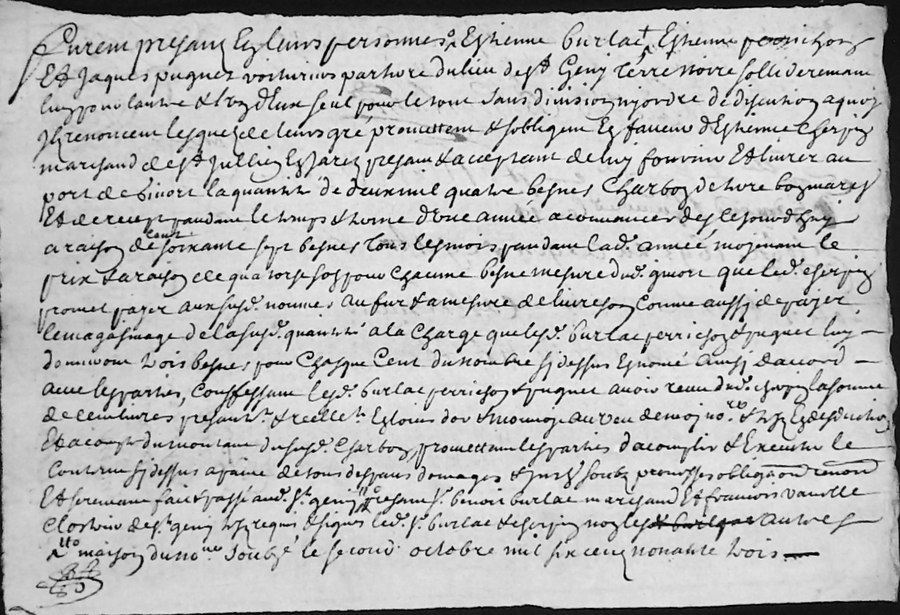 Furent presans En leurs personnes Estienne burlac Estienne perrichon
Et Jaques puguet voituriers par terre du lieu de St Geny Terrenoire sollideremant
luy pour lautre & lun d'Eux seul pour le tout sans division ny ordre de discution a quoy
Ils renoncent lesquels de leurs gré promettent & sobligent En faveur d'Estienne Cherpin
marchand de St Jullien En Jarez presant & acceptant de luy fournir Et livrer au
port de la quantité de deux mil quatre besnes Charbon de terre bon mares
Et de recept pandant le temps & terme d'une année a commancer des le jourdhuy
a raison de cent soixante sept besnes tous les mois pandant lad. année moyenant le
prix a raison de quatorze sols pour Chacune besne mesure dud. que led. cherpin
promet payer ausd. nommés au fur & a mesure de livreson Comme aussy de payer
le magasinage de la susd. quantité a la Charge que lesd. burlac perrichon & puguet luy
donneront trois besnes pour Chasque Cent du nombre sy dessus Ainsy d'accord
avec les parties, Confessant lesd. burlac perrichon & puguet avoir receu dud. cherpin la somme
de cent livres presantt. & reellet. En louis dor & monnoye au veu de moy nore. & En desduction
Et a compte du montant dud. Charbon, promettant les parties dacomplir & Executer le
Contenu sy dessus a paine de tous despans domages & soubz promesses obligaon renond
Et sermant fait & passé aud. St geny presant Sr. benoit burlac marchand Et francois
de St geny requis & signés led. Sr burlac & cherpin non les autres
maison du nore. soubzé le second octobre mil six cens nonante trois